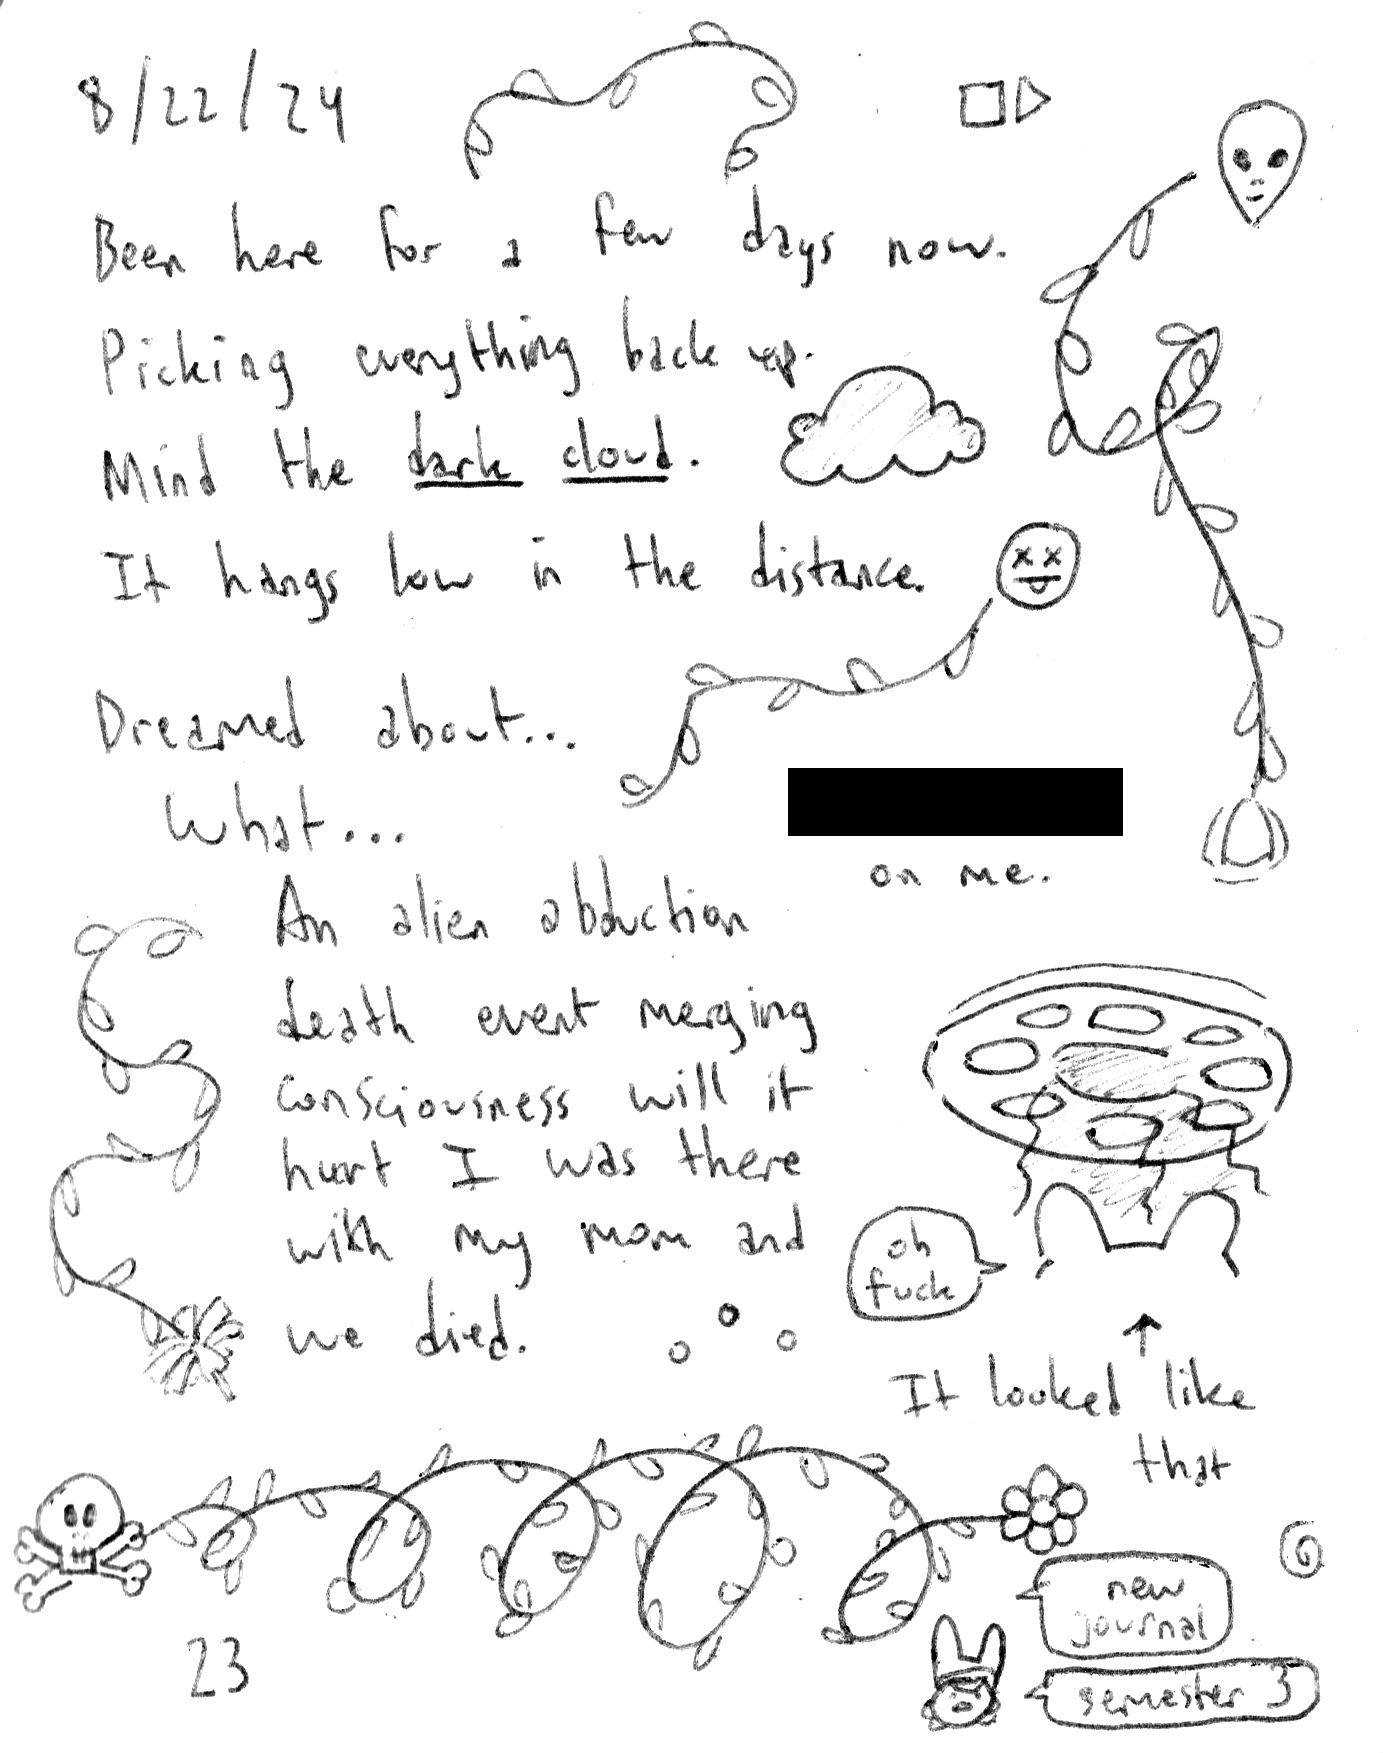 8/22/24
Been here for a few days now.
Picking everything back up.
Mind the dark cloud.
It hangs low in the distance.
Dreamed about...
What...
on me.
An alien abduction
death event merging
consciousness will it
hurt I was there
with my mom and
we died.
oh
fuck
It looked like
that
new
journal
semester 3
23